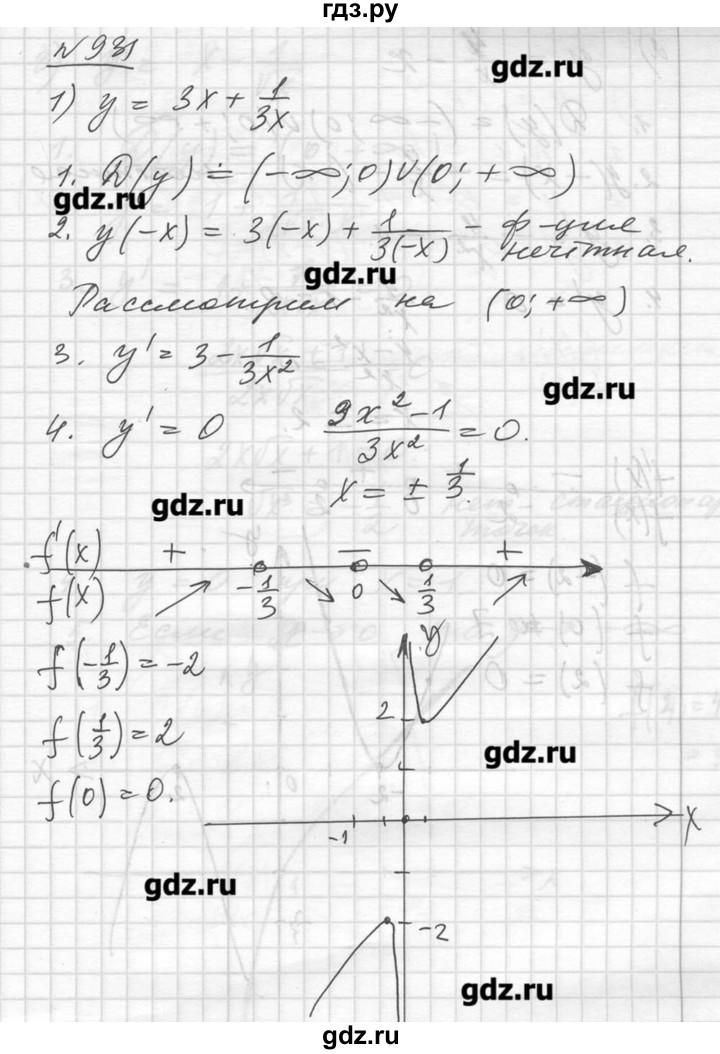 гдз.ру
№ 931
gdz.ru
1) y = 3x + 1/3x
1. D(y) = (-∞; 0) ∪ (0; +∞)
gdz.ru
2. y(-x) = 3(-x) + 1/3(-x) - ф-ция нечётная.
gdz.ru
Рассмотрим на (0; +∞)
3. y' = 3 - 1/3x²
gdz.ru
4. y' = 0 9x² - 1/3x² = 0.
x = ± 1/3.
gdz.ru
f'(x) + - +
f(x) -1/3 0 1/3
f(-1/3) = -2
y
f(1/3) = 2
2
gdz.ru
f(0) = 0.
-1
x
gdz.ru
-2
gdz.ru
gdz.ru